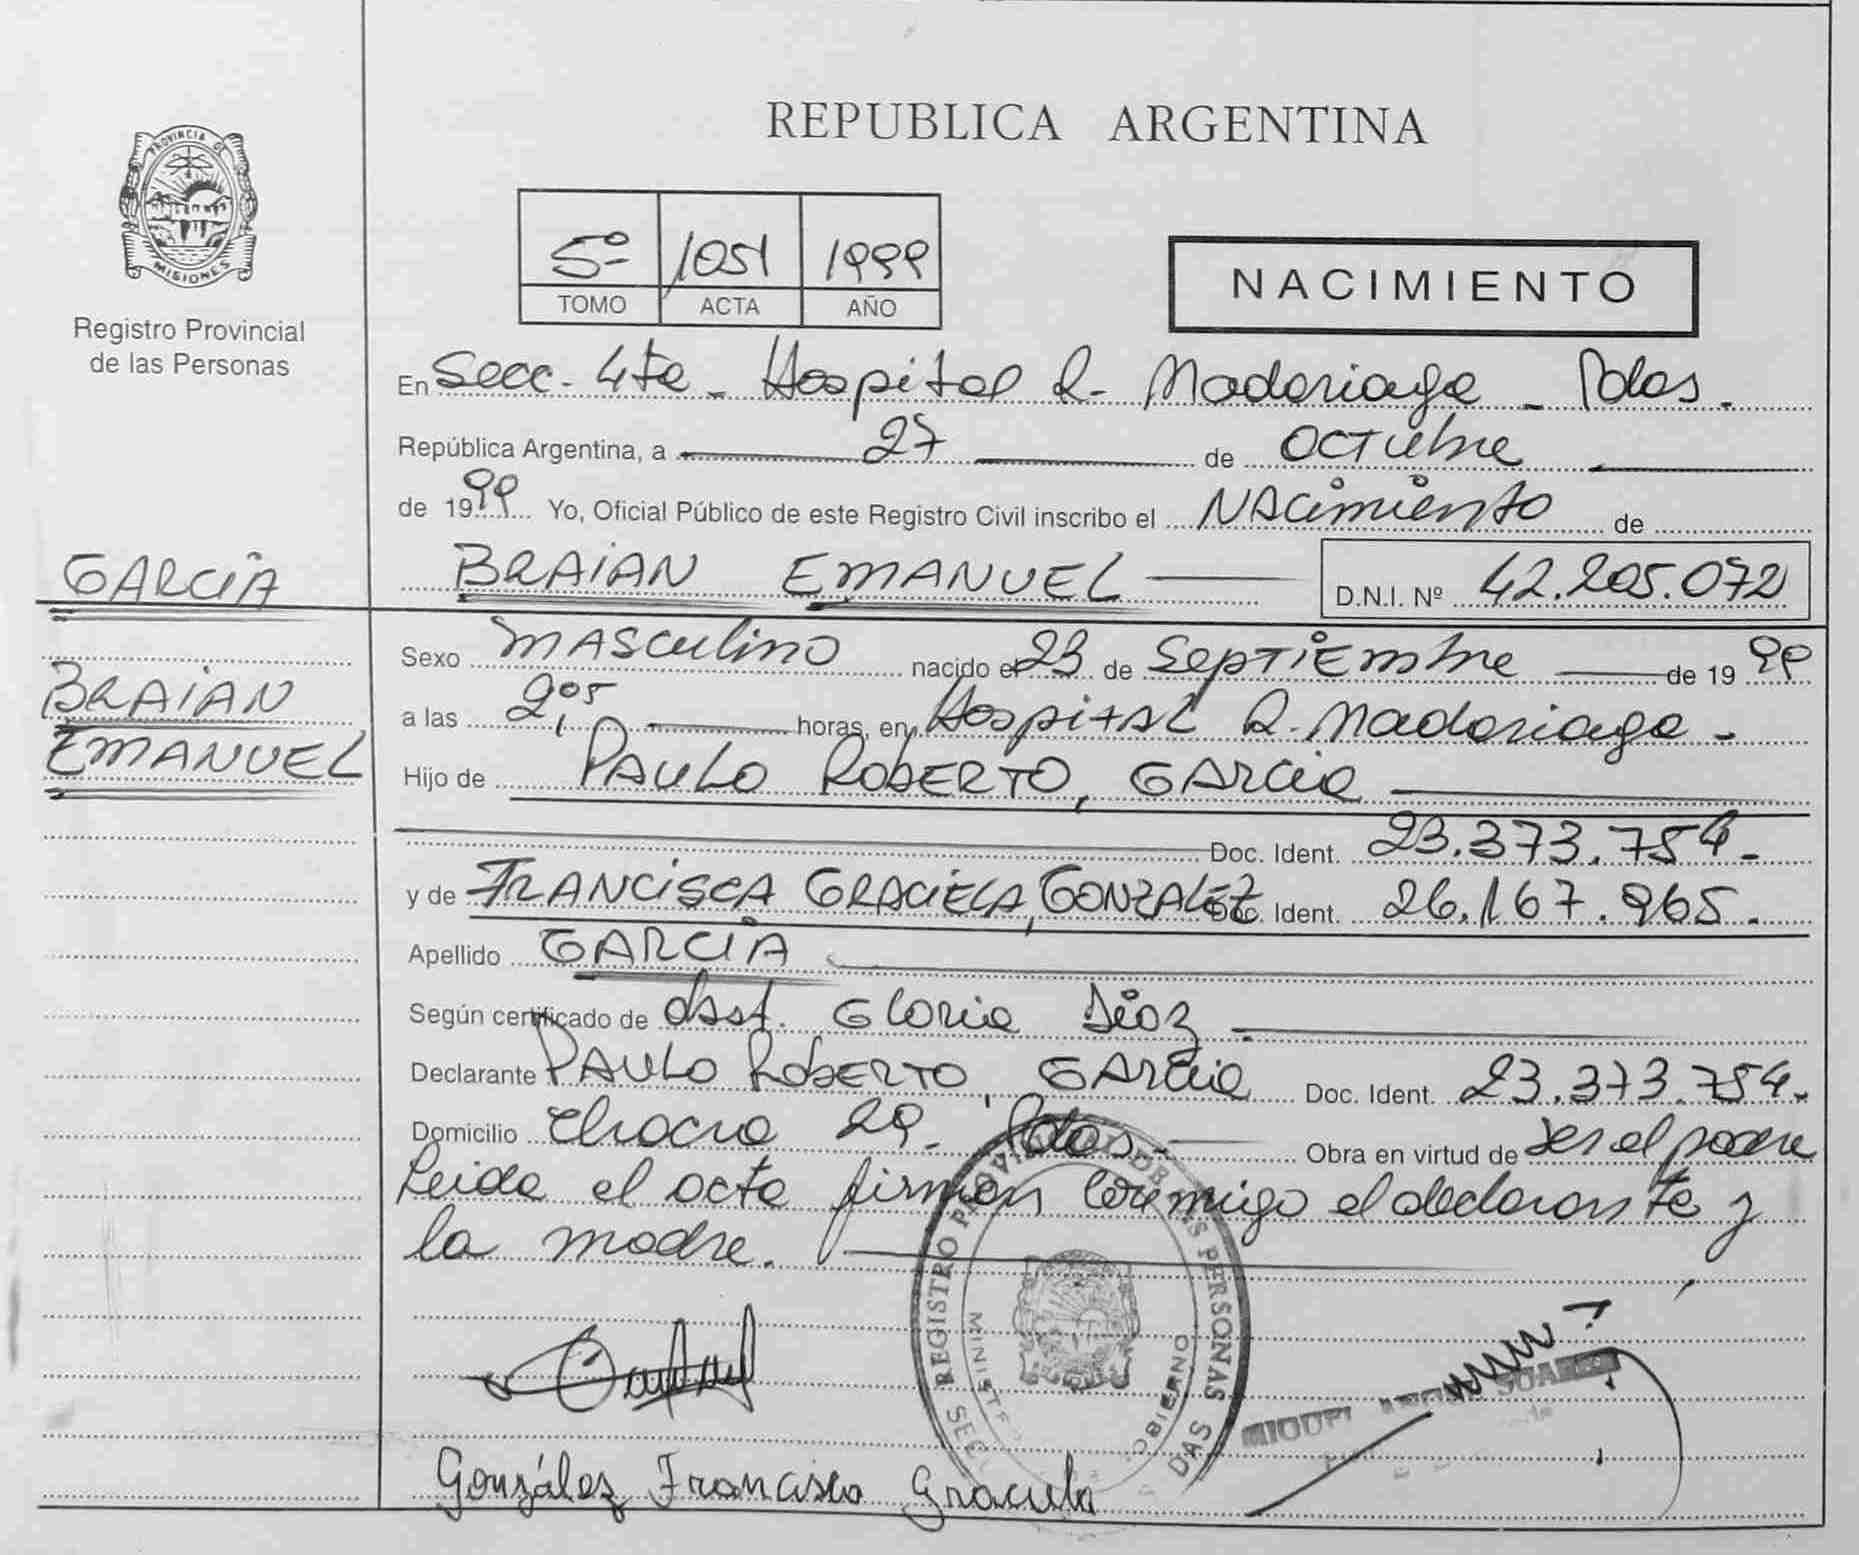 REPUBLICA ARGENTINA
PROVINCIA DE
MISIONES
Registro Provincial
de las Personas
5º 1051 1999
TOMO ACTA AÑO
NACIMIENTO
En Secc. 4ta - Hospital R. Madariaga - Pdas.
República Argentina, a 27 de OCTUbre
de 1999 Yo, Oficial Público de este Registro Civil inscribo el NACimiento de
BRAIAN EMANUEL D.N.I. Nº 42.205.072
GARCíA
BRAIAN
EMANUEL
Sexo MASculino nacido el 23 de SepTiEmbre de 1999
a las 2,05 horas, en HospiTAL R. Madariaga -
Hijo de PAULO ROBERTO, GARCia
Doc. Ident. 23.373.754.-
y de FRANCiSCA GRACiELA, GONZALEZ Doc. Ident. 26.167.965.-
Apellido GARCíA
Según certificado de Obst. Gloria Díaz
Declarante PAULO RobERTO GARCia Doc. Ident. 23.373.754.-
Domicilio Chacra 29. Pdas. - Obra en virtud de ser el padre
Leida el acta firman conmigo el declarante y
la madre.
REGISTRO PROVINCIAL DE LAS PERSONAS
González Francisca Graciela